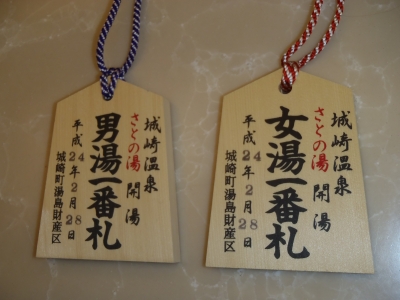 城崎温泉
さとの湯 開湯
男湯一番札
平成24年2月28日
城崎町湯島財産区
城崎温泉
さとの湯 開湯
女湯一番札
平成24年2月28日
城崎町湯島財産区